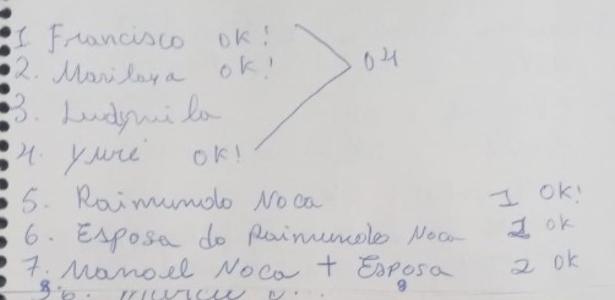 1 Francisco OK!
2. Marilaya OK!
04
3. Ludymila
4. Yuri OK!
5. Raimundo Noca 1 OK!
6. Esposa do Raimundo Noca 1 OK
7. Manoel Noca + Esposa 2 OK
8 8